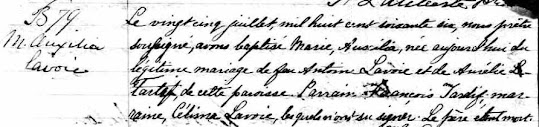 B 79
M. Auxilia
Lavoie
Le vingt cinq juillet mil huit cent soixante six, nous prêtre
soussigné, avons baptisé Marie, Auxilia, née aujourd'hui du
légitime mariage de feu Antoine Lavoie et de Aurélie
Tardif, de cette paroisse Parrain François Tardif, mar-
raine, Célina Lavoie, lesquels n'ont su signer. Le père étant mort.